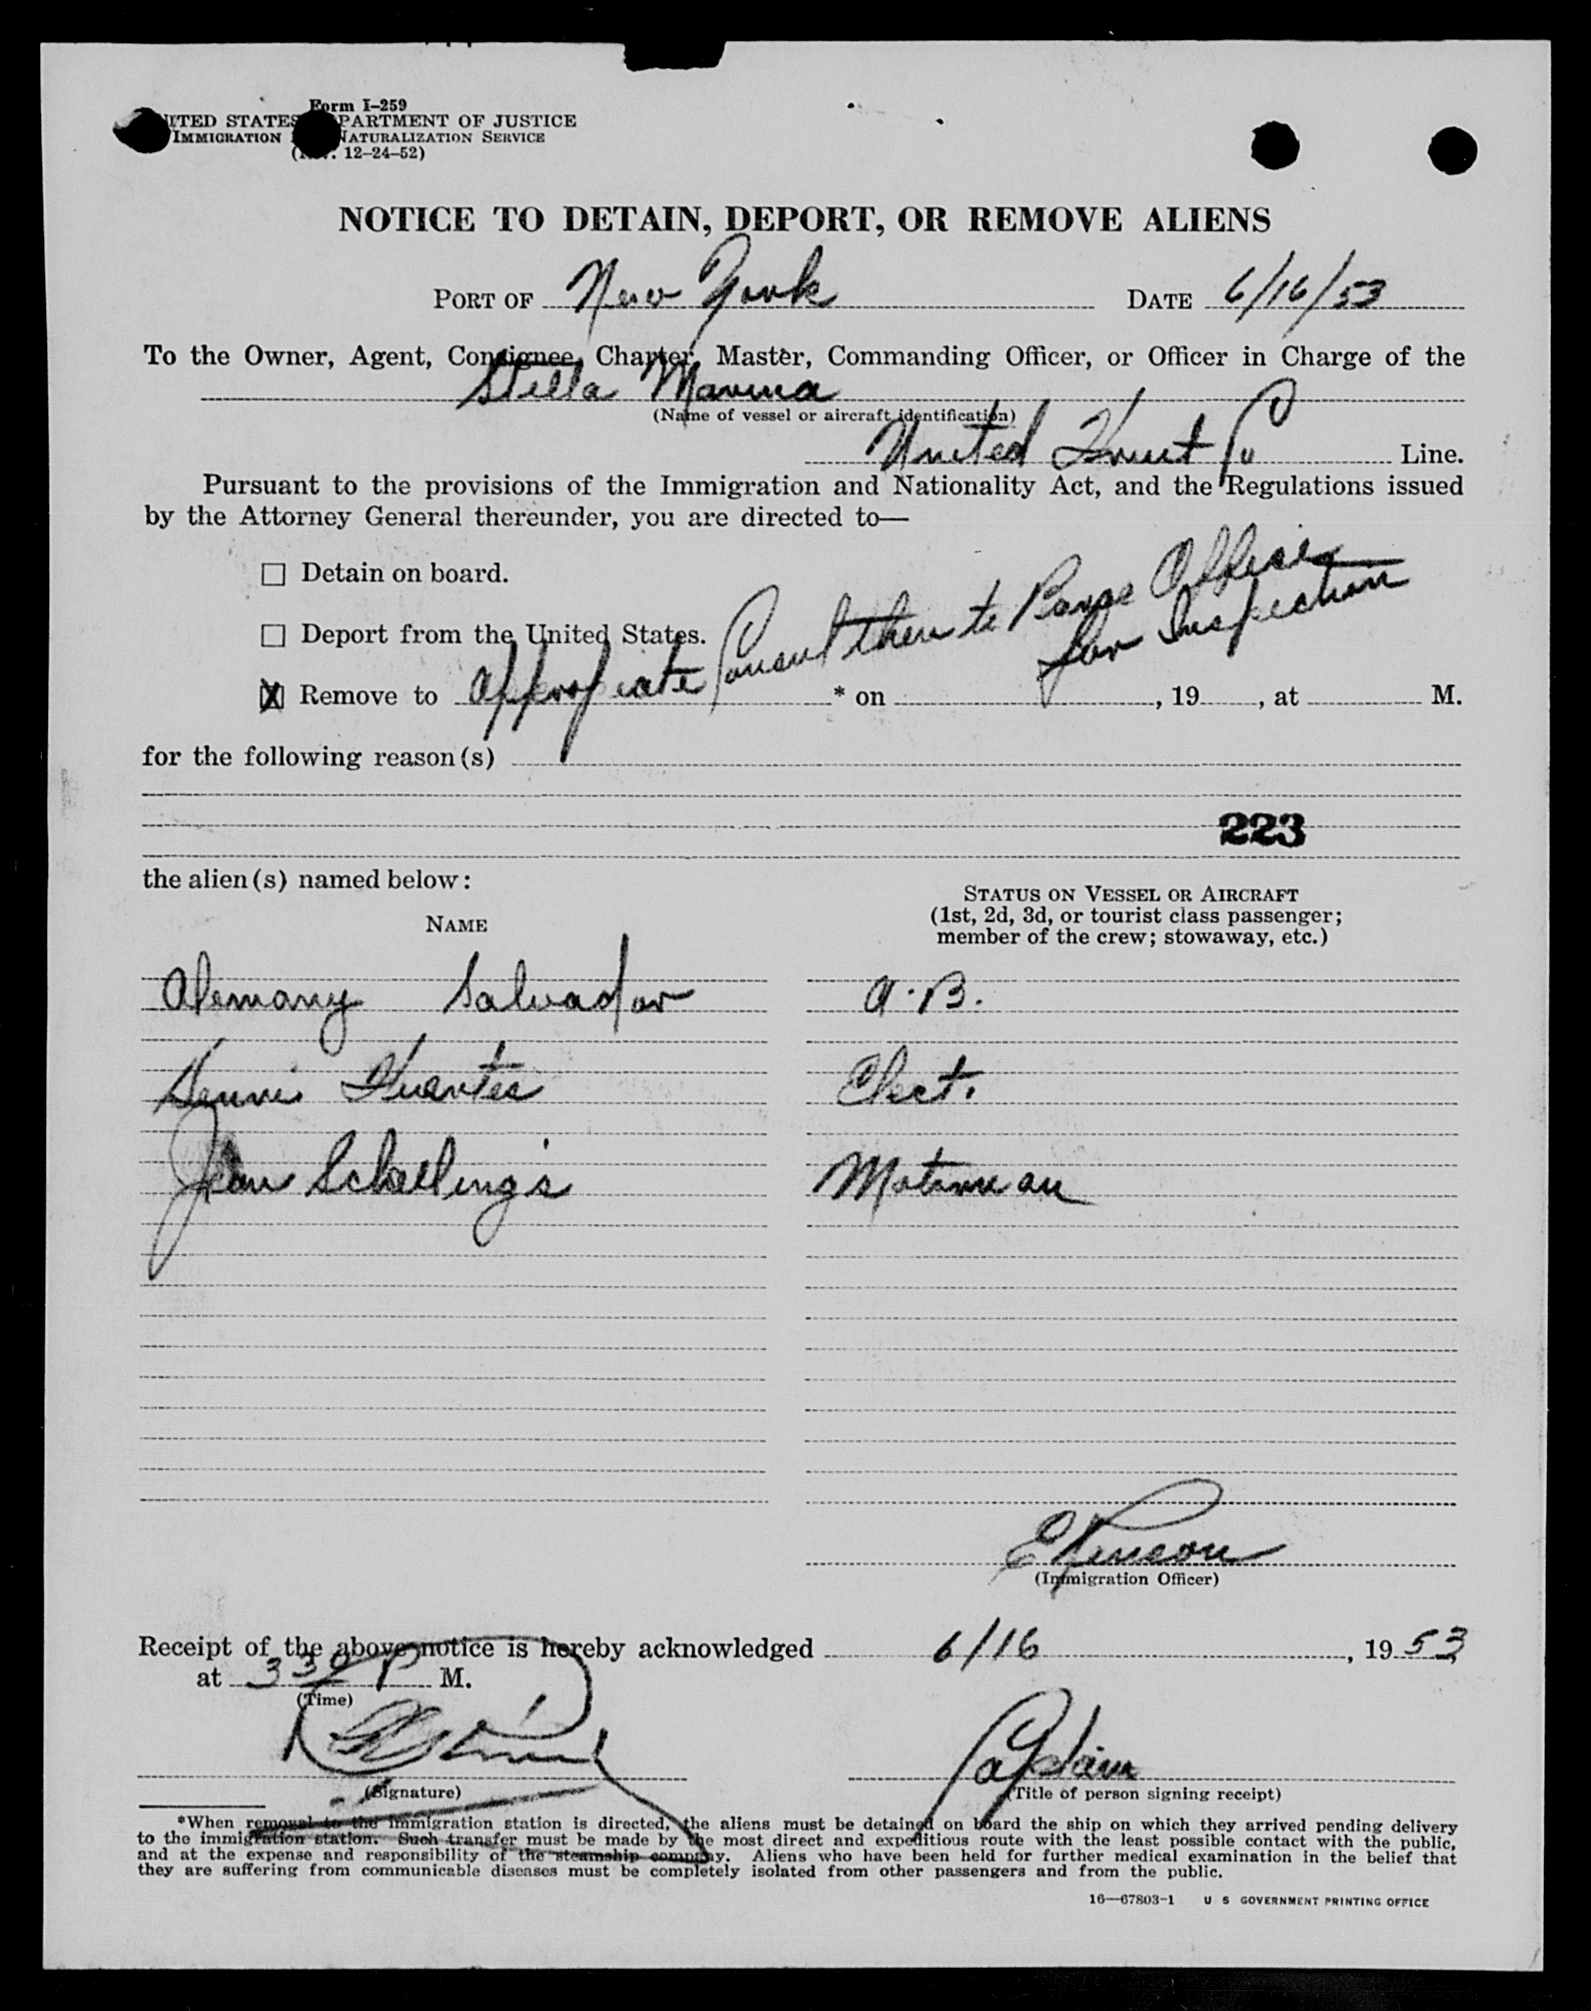 Form I-259
UNITED STATES DEPARTMENT OF JUSTICE
IMMIGRATION NATURALIZATION SERVICE
12-24-52)
NOTICE TO DETAIN, DEPORT, OR REMOVE ALIENS
PORT OF New York DATE 6/16/53
To the Owner, Agent, Consignee, Charter, Master, Commanding Officer, or Officer in Charge of the
Stella Marina
(Name of vessel or aircraft identification)
United Fruit Co Line.
Pursuant to the provisions of the Immigration and Nationality Act, and the Regulations issued
by the Attorney General thereunder, you are directed to—
☐ Detain on board.
☐ Deport from the United States.
☒ Remove to Appropiate Consul then to Barge Office for Inspection * on , 19 , at M.
for the following reason(s)
223
the alien(s) named below:
NAME
STATUS ON VESSEL OR AIRCRAFT
(1st, 2d, 3d, or tourist class passenger;
member of the crew; stowaway, etc.)
Alemany Salvador A.B.
Fuentes Elect.
Jean Schellings Motorman
(Immigration Officer)
Receipt of the above notice is hereby acknowledged 6/16, 1953
at 330 P M.
(Time)
Captain
(Signature) (Title of person signing receipt)
*When removal to the immigration station is directed, the aliens must be detained on board the ship on which they arrived pending delivery
to the immigration station. Such transfer must be made by the most direct and expeditious route with the least possible contact with the public,
and at the expense and responsibility of the steamship company. Aliens who have been held for further medical examination in the belief that
they are suffering from communicable diseases must be completely isolated from other passengers and from the public.
16—67803-1 U S GOVERNMENT PRINTING OFFICE